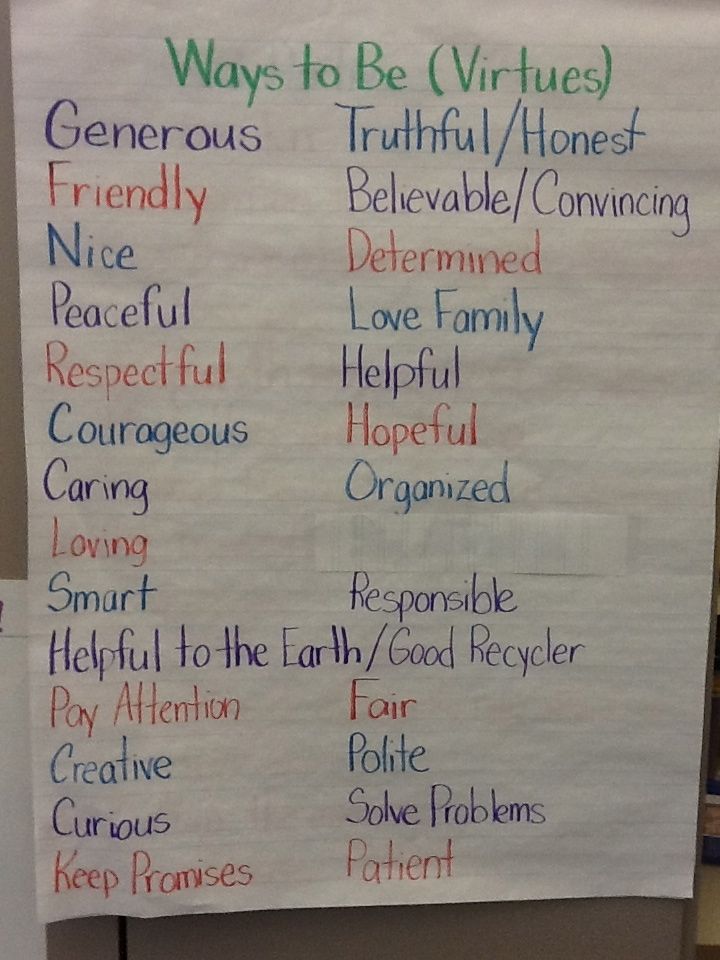 Ways to Be (Virtues)
Generous Truthful/Honest
Friendly Believable/Convincing
Nice Determined
Peaceful Love Family
Respectful Helpful
Courageous Hopeful
Caring Organized
Loving
Smart Responsible
Helpful to the Earth/Good Recycler
Pay Attention Fair
Creative Polite
Curious Solve Problems
Keep Promises Patient